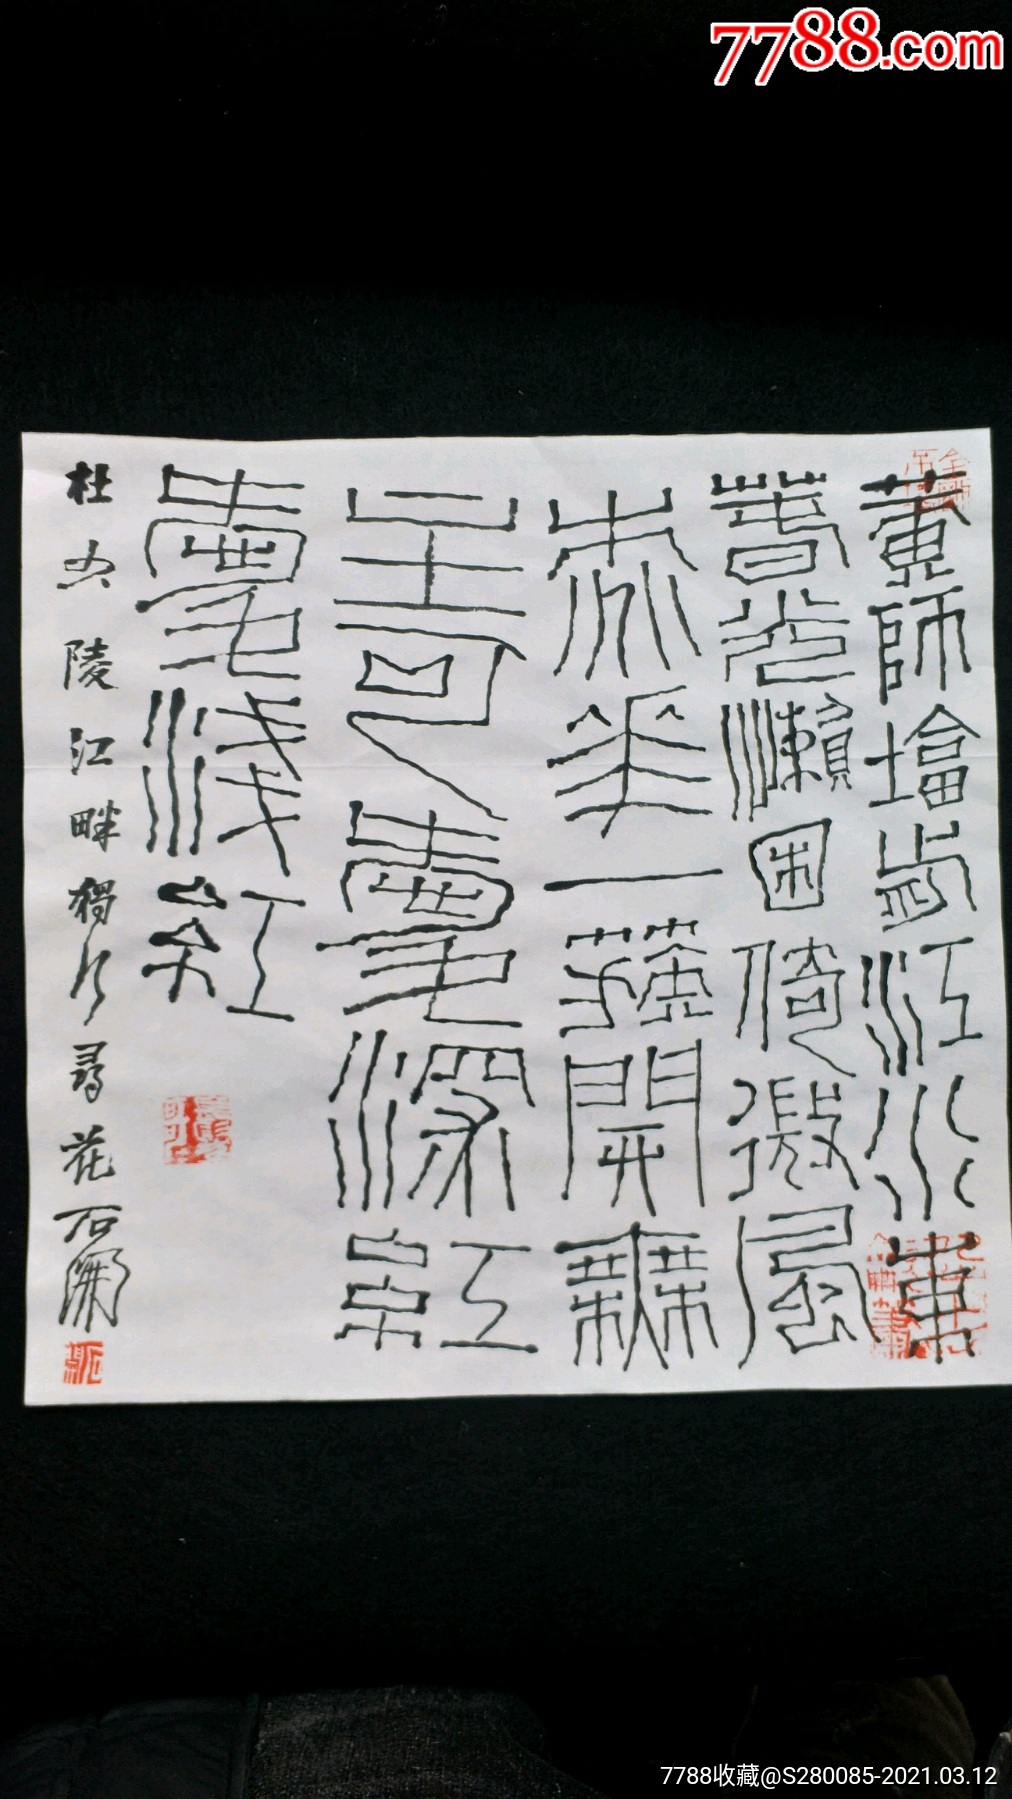 7788.com
黃師塔前江水東
春光懶困倚微風
桃花一簇開無
主可愛深紅
愛淺紅
杜少陵江畔獨步尋花石開
7788收藏@S280085-2021.03.12